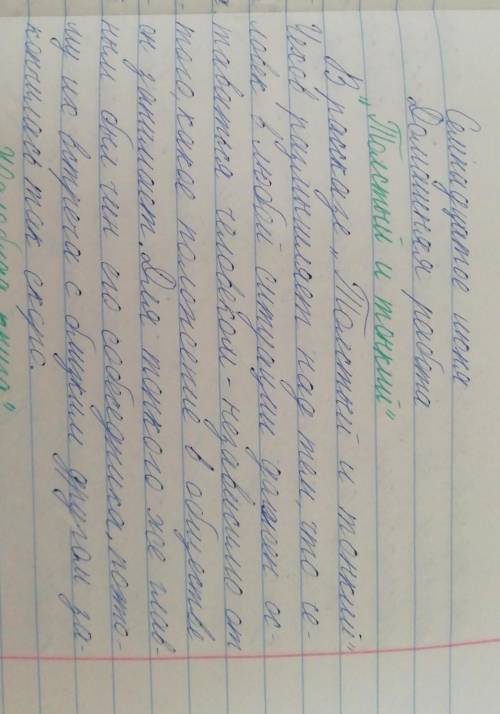 Семнадцатое июня
Домашняя работа
„Толстый и тонкий"
В рассказе „Толстый и тонкий"
Чехов размышляет над тем, что че-
ловек в любой ситуации должен ос-
таваться человеком - независимо от
того, какое положение в обществе
он занимает. Для тонкого же глав-
ным был чин его собеседника, пото-
му их встреча с близким другом за-
кончилась так скоро.